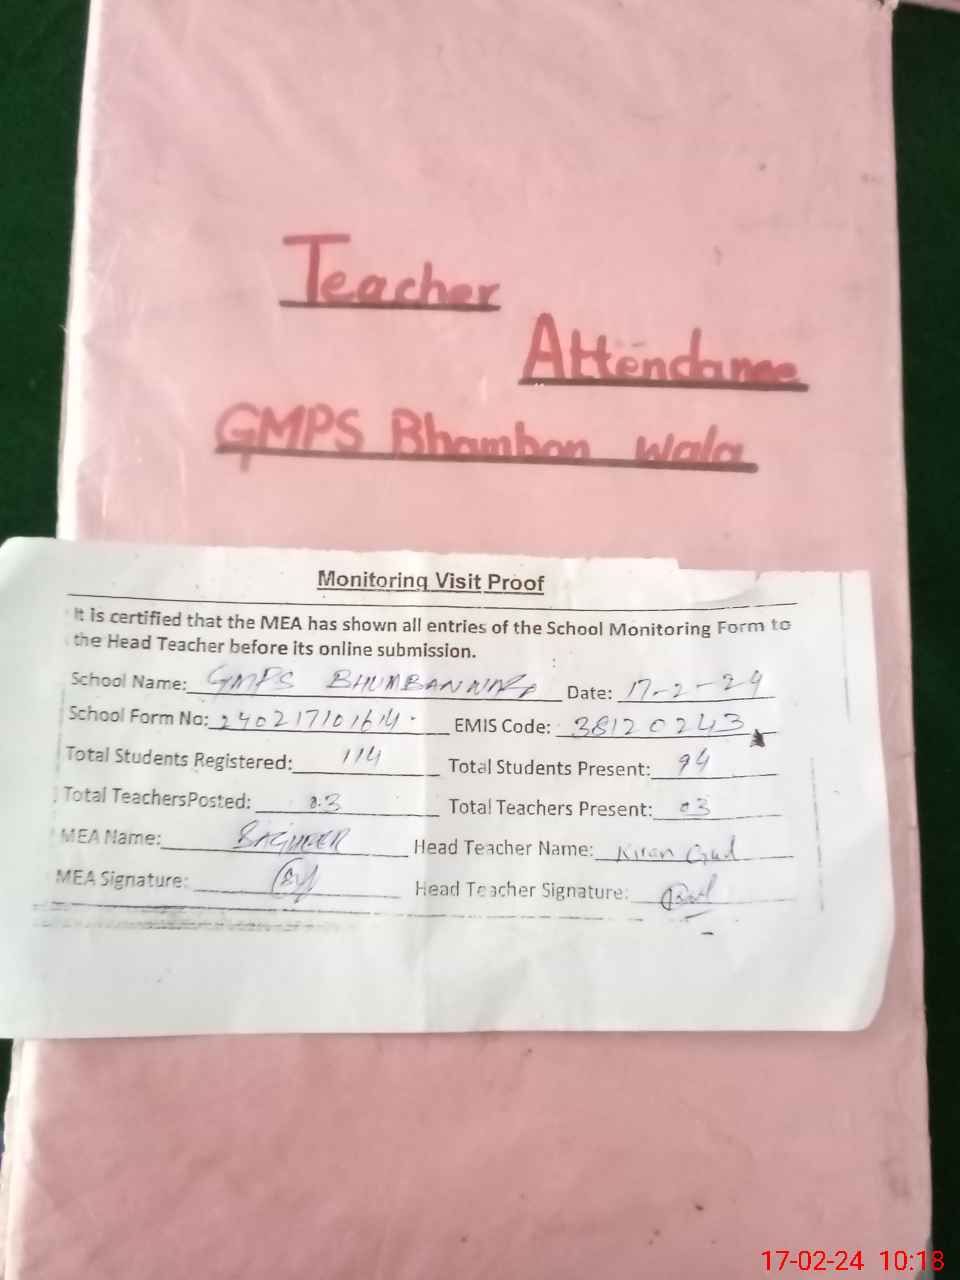 Teacher
Attendance
GMPS Bhamban wala
Monitoring Visit Proof
It is certified that the MEA has shown all entries of the School Monitoring Form to
the Head Teacher before its online submission.
School Name: GMPS BHUMBANWALA Date: 17-2-24
School Form No: 240217101614 EMIS Code: 38120243
Total Students Registered: 114 Total Students Present: 94
Total TeachersPosted: 03 Total Teachers Present: 03
MEA Name: Head Teacher Name: Kiran Gul
MEA Signature: Head Teacher Signature:
17-02-24 10:18